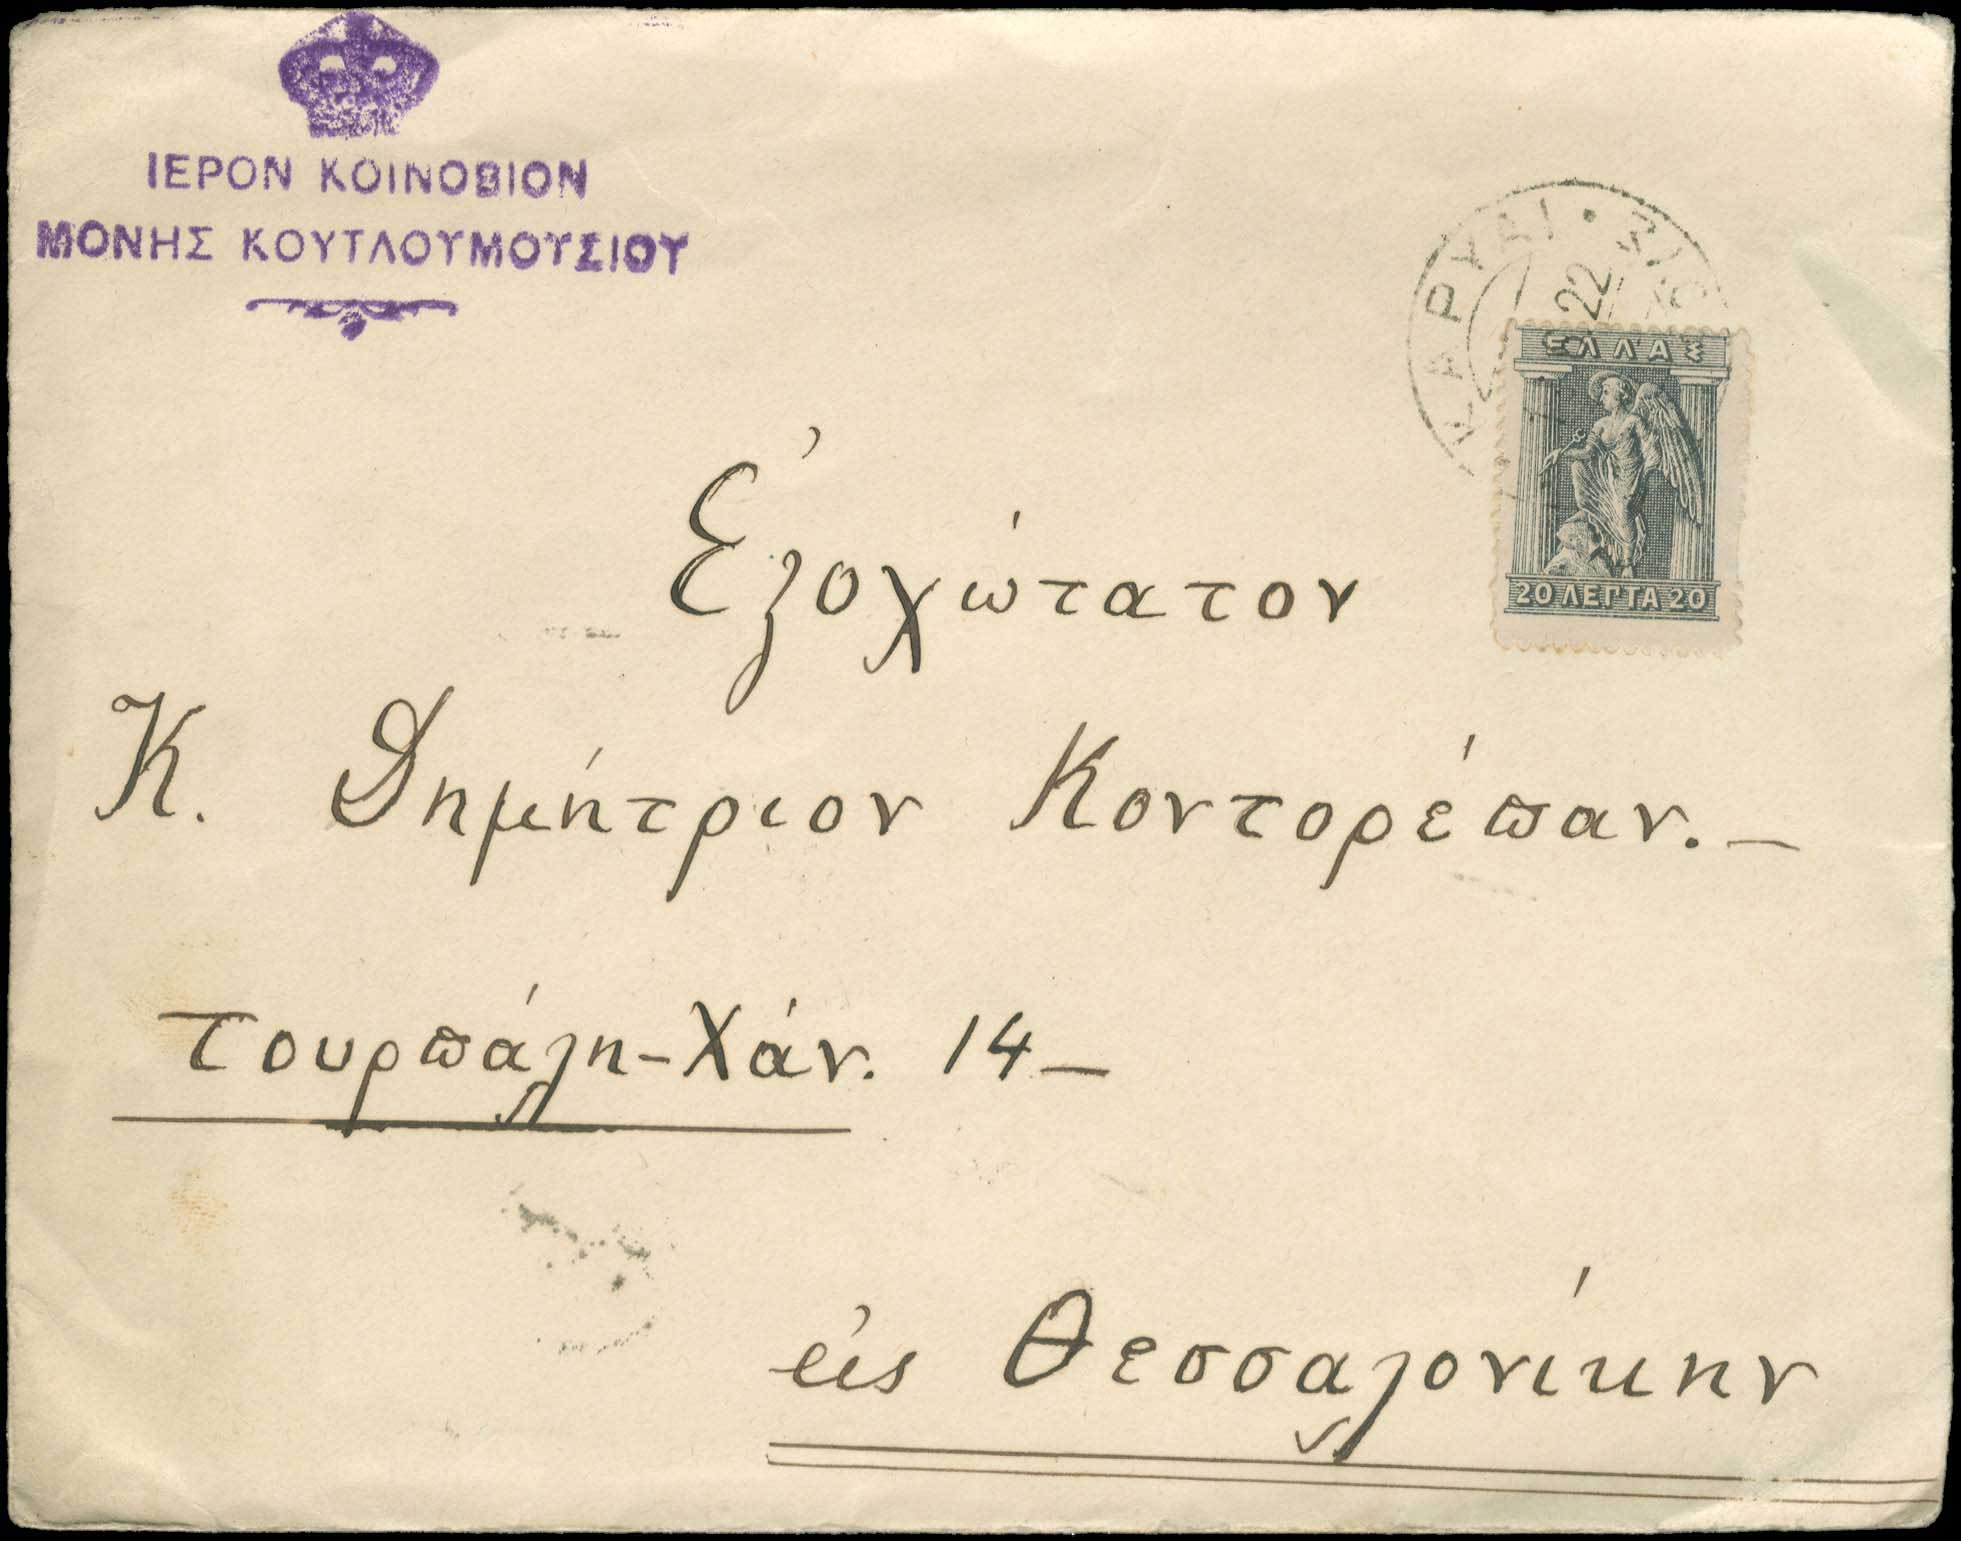 ΙΕΡΟΝ ΚΟΙΝΟΒΙΟΝ
ΜΟΝΗΣ ΚΟΥΤΛΟΥΜΟΥΣΙΟΥ
ΚΑΡΥΑΙ
22
ΕΛΛΑΣ
20 ΛΕΠΤΑ 20
Ἐξοχώτατον
Κ. Δημήτριον Κοντορέπαν.–
Τουρπάλη-Χάν. 14–
εἰς Θεσσαλονίκην